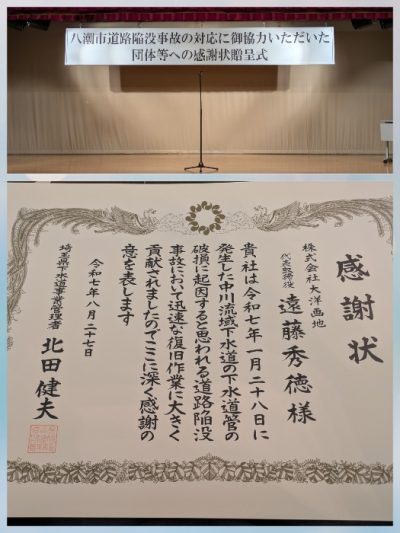 八潮市道路陥没事故の対応に御協力いただいた
団体等への感謝状贈呈式
感謝状
株式会社大洋画地
代表取締役 遠藤秀徳様
貴社は令和七年一月二十八日に
発生した中川流域下水道の下水道管の
破損に起因すると思われる道路陥没
事故において迅速な復旧作業に大きく
貢献されましたのでここに深く感謝の
意を表します
令和七年八月二十七日
埼玉県下水道事業管理者 北田健夫